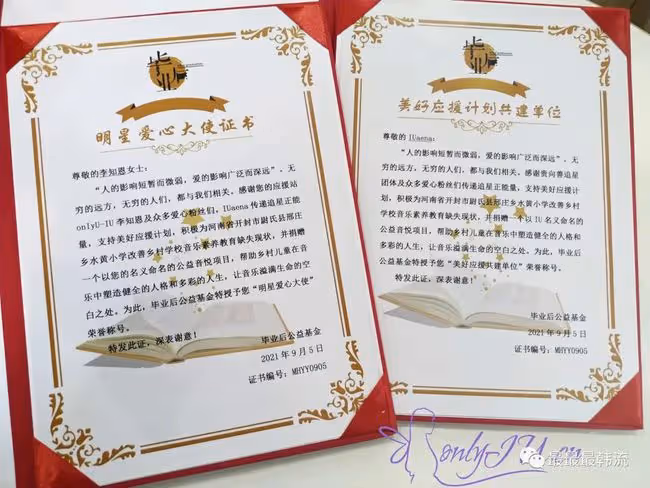 毕业后
明星爱心大使证书
尊敬的李知恩女士:
“人的影响短暂而微弱，爱的影响广泛而深远”，无
穷的远方，无穷的人们，都与我们相关，感谢您的应援站
onlyU-IU 李知恩及众多爱心粉丝们，IUaena 传递追星正能
量，支持美好应援计划，积极为河南省开封市尉氏县邢庄
乡水黄小学改善乡村学校音乐素养教育缺失现状，并捐赠
一个以您的名义命名的公益音悦项目，帮助乡村儿童在音
乐中塑造健全的人格和多彩的人生，让音乐溢满生命的空
白之处。为此，毕业后公益基金特授予您“明星爱心大使”
荣誉称号。
特发此证，深表谢意！
毕业后公益基金
2021 年 9 月 5 日
证书编号：MHYY0905
毕业后
美好应援计划共建单位
尊敬的 IUaena：
“人的影响短暂而微弱，爱的影响广泛而深远”，无
穷的远方，无穷的人们，都与我们相关，感谢贵向善追星
团体及众多爱心粉丝们传递追星正能量，支持美好应援计
划，积极为河南省开封市尉氏县邢庄乡水黄小学改善乡村
学校音乐素养教育缺失现状，并捐赠一个以 IU 名义命名的
公益音悦项目，帮助乡村儿童在音乐中塑造健全的人格和
多彩的人生，让音乐溢满生命的空白之处。为此，毕业后
公益基金特授予您“美好应援共建单位”荣誉称号。
特发此证，深表谢意！
毕业后公益基金
2021 年 9 月 5 日
证书编号：MHYY0905
onlyIU.cn
最最最韩流